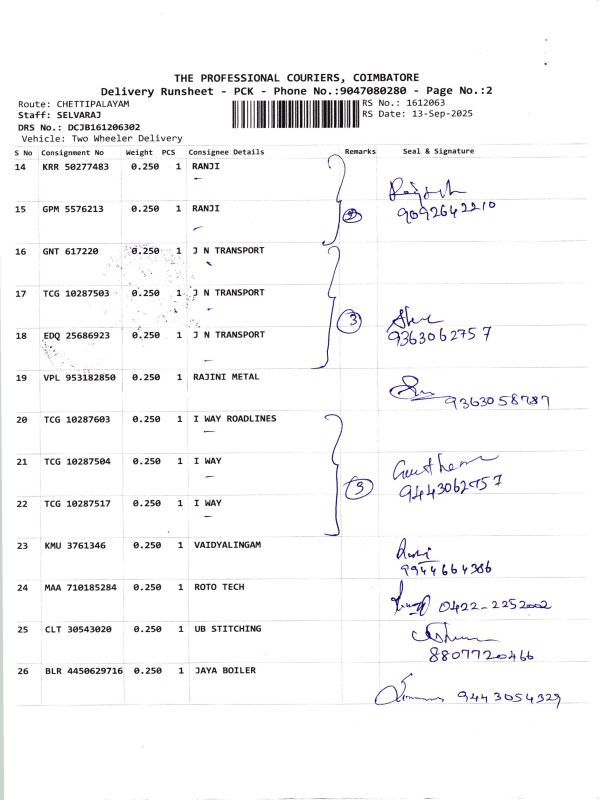 THE PROFESSIONAL COURIERS, COIMBATORE
Delivery Runsheet - PCK - Phone No.:9047080280 - Page No.:2
Route: CHETTIPALAYAM
RS No.: 1612063
Staff: SELVARAJ
RS Date: 13-Sep-2025
DRS No.: DCJB161206302
Vehicle: Two Wheeler Delivery
S No Consignment No Weight PCS Consignee Details Remarks Seal & Signature
14 KRR 50277483 0.250 1 RANJI
15 GPM 5576213 0.250 1 RANJI
9092642210
16 GNT 617220 0.250 1 J N TRANSPORT
17 TCG 10287503 0.250 1 J N TRANSPORT
3
18 EDQ 25686923 0.250 1 J N TRANSPORT
9363062757
19 VPL 953182850 0.250 1 RAJINI METAL
9363058787
20 TCG 10287603 0.250 1 I WAY ROADLINES
21 TCG 10287504 0.250 1 I WAY
3
9443062757
22 TCG 10287517 0.250 1 I WAY
23 KMU 3761346 0.250 1 VAIDYALINGAM
9944664386
24 MAA 710185284 0.250 1 ROTO TECH
0422-2252002
25 CLT 30543020 0.250 1 UB STITCHING
8807720466
26 BLR 4450629716 0.250 1 JAYA BOILER
9443054329